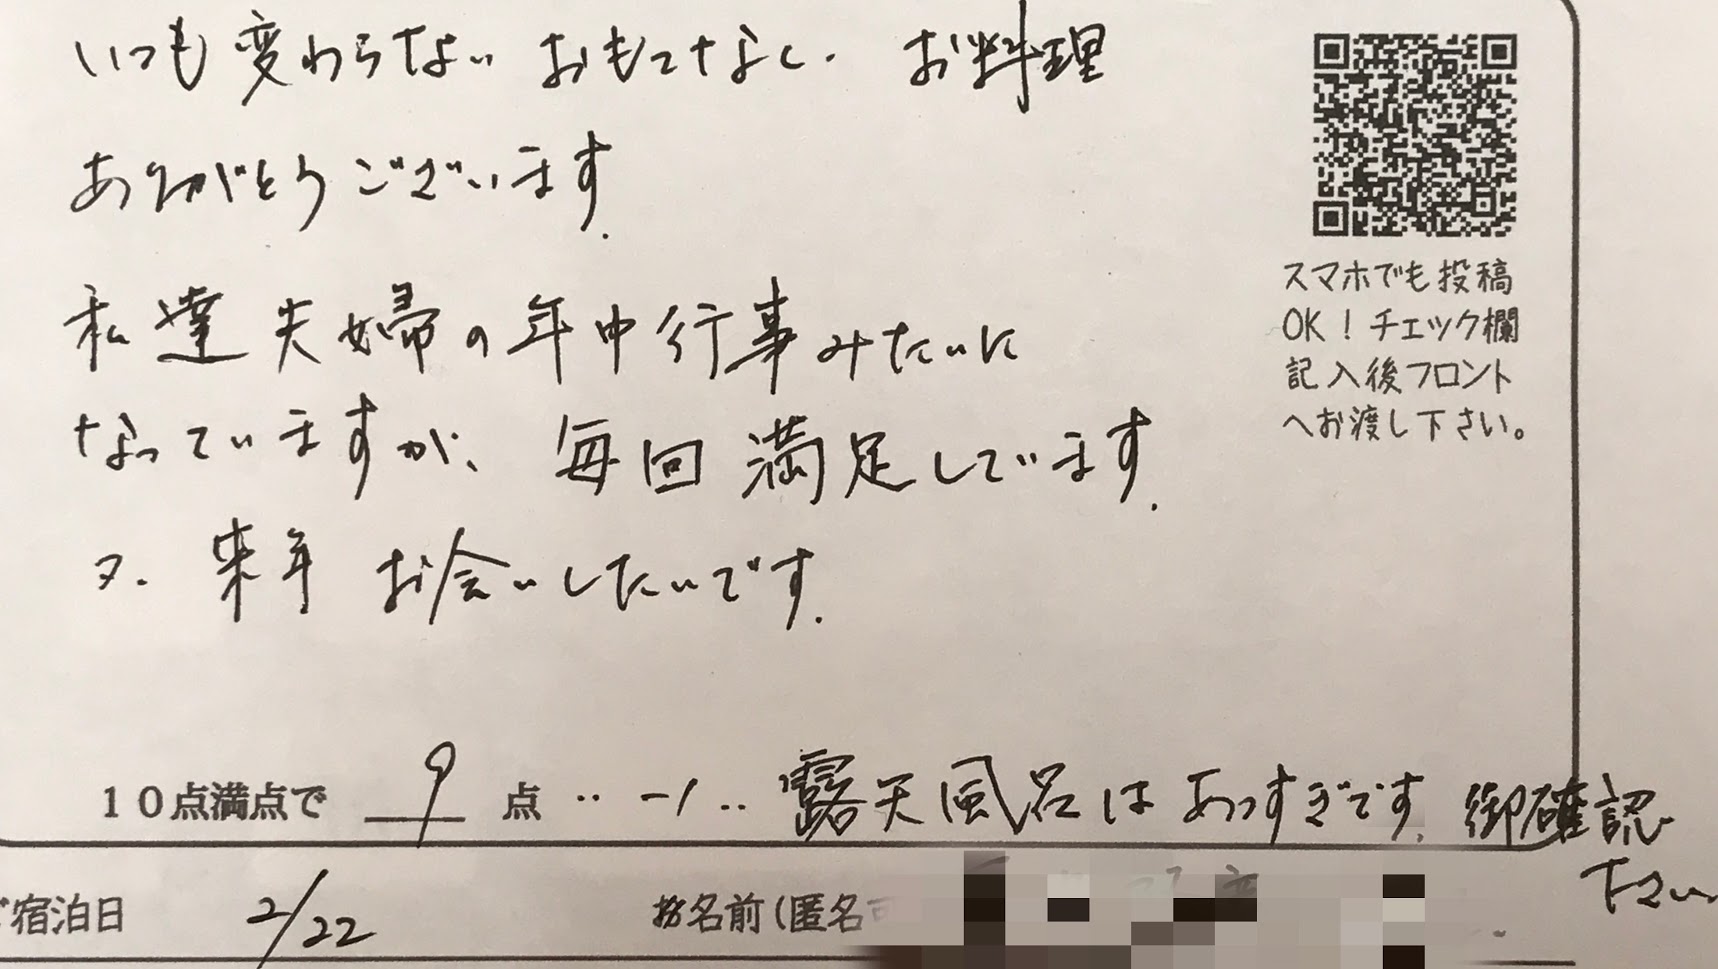 いつも変わらない おもてなし. お料理
ありがとうございます.
私達夫婦の年中行事みたいに
なっていますが、毎回満足しています.
又. 来年 お会いしたいです.
スマホでも投稿
OK！チェック欄
記入後フロント
へお渡し下さい。
10点満点で 9 点 ‥ -1 ‥ 露天風呂はあつすぎです. 御確認
下さい
宿泊日 2/22 お名前(匿名